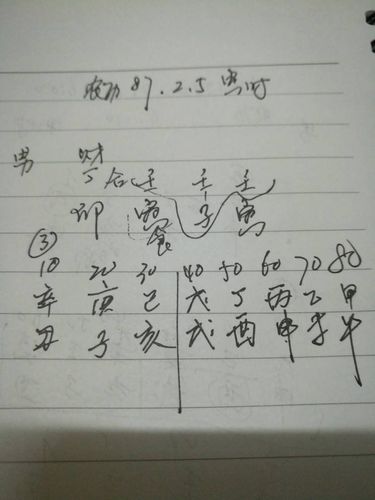 农历 87.2.5 寅时
男 财
丁合壬 壬 壬
卯 寅 子 寅
食
③
10 20 30 40 50 60 70 80
辛 庚 己 戊 丁 丙 乙 甲
丑 子 亥 戌 酉 申 未 午